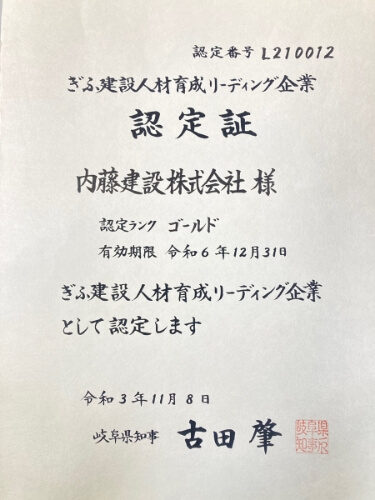 認定番号 L210012
ぎふ建設人材育成リーディング企業
認定証
内藤建設株式会社 様
認定ランク ゴールド
有効期限 令和6年12月31日
ぎふ建設人材育成リーディング企業
として認定します
令和3年11月8日
岐阜県知事 古田 肇